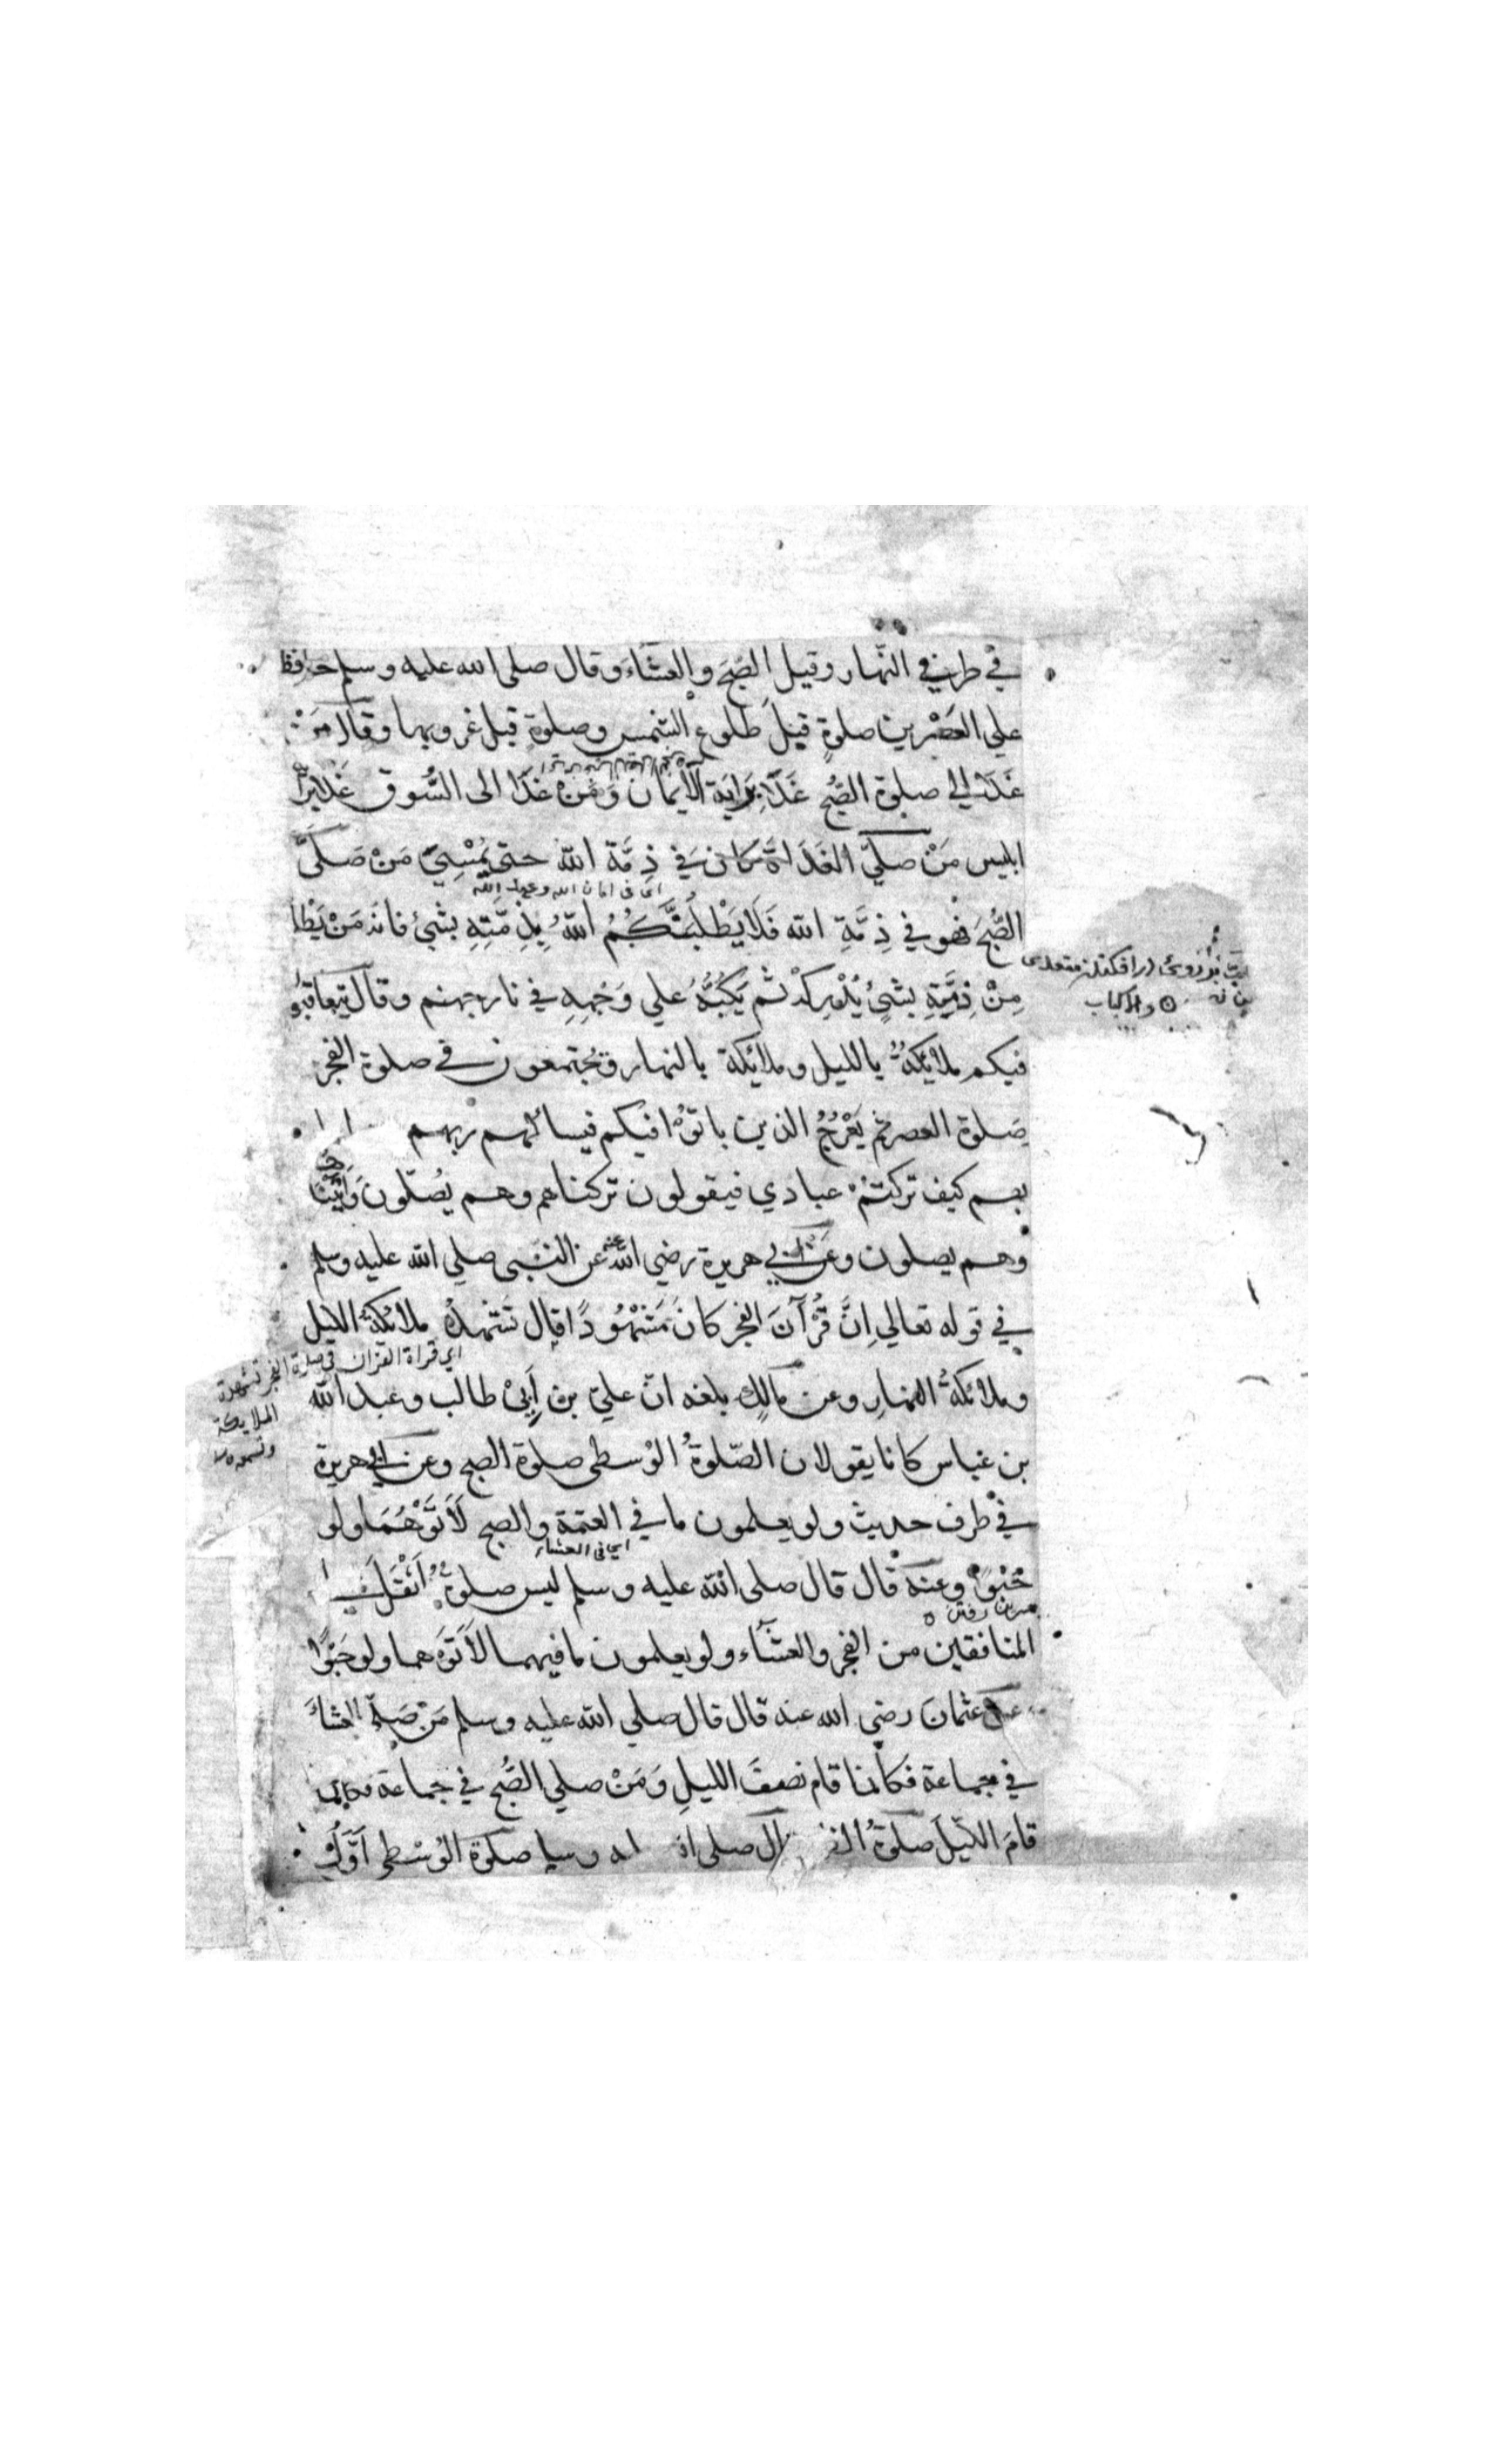 في طرفي النّهار وقيل الصّبحَ والعشاءَ وقال صلى الله عليه وسلم حافظا
علي العَصْرين صلوةٍ قبلَ طلوع الشمس وصلوةٍ قبل غروبها وقال مَنْ
غَدَا الي صلوة الصُّبحِ غَدَا بِرَايَة الايمان وَمَنْ غَدَا الى السُّوق غَدَا بِرَايَة
ابليس مَنْ صلّي الغَدَاةَ كان في ذِمَّة الله حتى يُمْسِيَ مَنْ صَلَّى
اى فى امان الله وعهد الله
الصُّبحَ فهُو في ذِمَّةِ الله فَلَا يَطْلُبَنَّكُمُ اللهُ بِذِمَّتِهِ بشيْ فانه مَنْ يَطْلُبـ
مِنْ ذِمَّتِهِ بشيْ يُدْرِكْهُ ثم يَكُبُّهُ علي وَجْهِهِ في نار جهنم وقال يتعاقبُو
والاكباب
فيكم ملائكةٌ بالليل وملائكة بالنهار ويجتمعون في صلوة الفجر
صلوة العصر ثم يَعْرُجُ الذين باتُوْا فيكم فيسالهم ربهم
بهم كيف تركتمْ عبادي فيقولون تركناهم وهم يُصَلّونَ وَاَتَيْنَا
وهم يصلون وعَن ابي هريرة رضي الله عنه عن النبي صلي الله عليه وسلم
في قوله تعالي اِنَّ قُرْآنَ الفجر كان مَشْهُودًا قال تشْهدُهُ ملائكةُ الليل
اي قراة القران في صلوة الفجر تشهده
الملايكة
وملائكةُ النهارِ وعن مالكٍ بلغه انّ عليّ بن اَبِيْ طالب وعبد الله
بن عباس كانا يقولان الصّلوةُ الوُسطى صلوة الصبح وعن ابي هريرة
في طرف حديث ولو يعلمون ما في العتمة والصبح لَاَتَوْهُمَا ولو
اي في العشاء
حَبْوًا وعنه قال قال صلى الله عليه وسلم ليس صلوةٌ اَثْقَلَ
المنافقين من الفجر والعشاء ولو يعلمون ما فيهما لاَتَوْهما ولو حَبْوًا
عن عثمانَ رضي الله عنه قال قال صلي الله عليه وسلم مَنْ صَلّي العشاءَ
في جماعة فكانما قام نصفَ الليلِ وَمَنْ صلي الصُّبح في جماعة فكانما
قامَ الليلَ صلوةُ صلى وسلم صلوة الوُسْطى اَوَّلُ